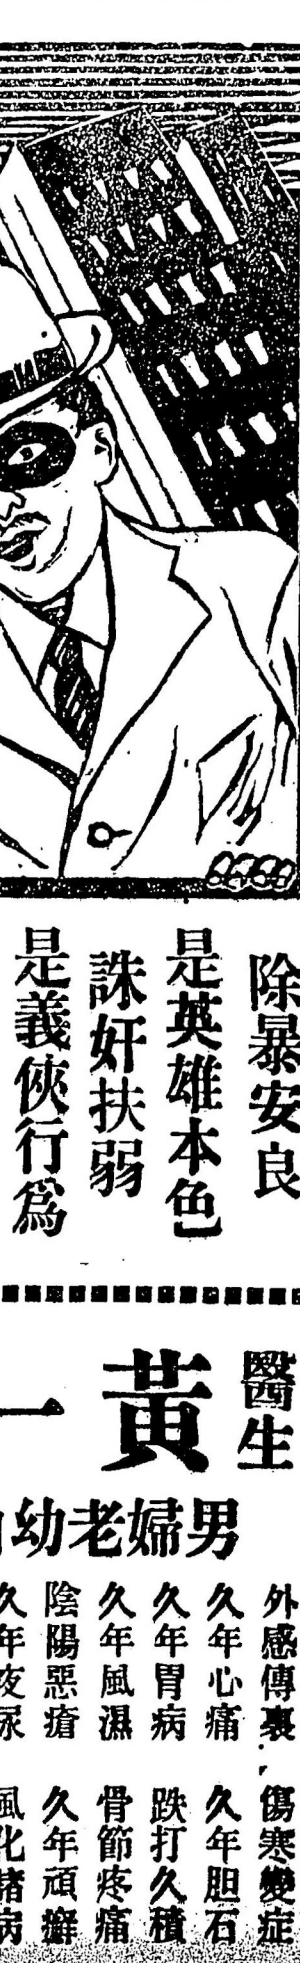 除暴安良
是英雄本色
誅奸扶弱
是義俠行為
醫生
黃一
男婦老幼
外感傳裏 傷寒變症
久年心痛 久年胆石
久年胃病 跌打久積
久年風濕 骨節疼痛
陰陽惡瘡 久年頑癬
久年夜尿 風化諸病